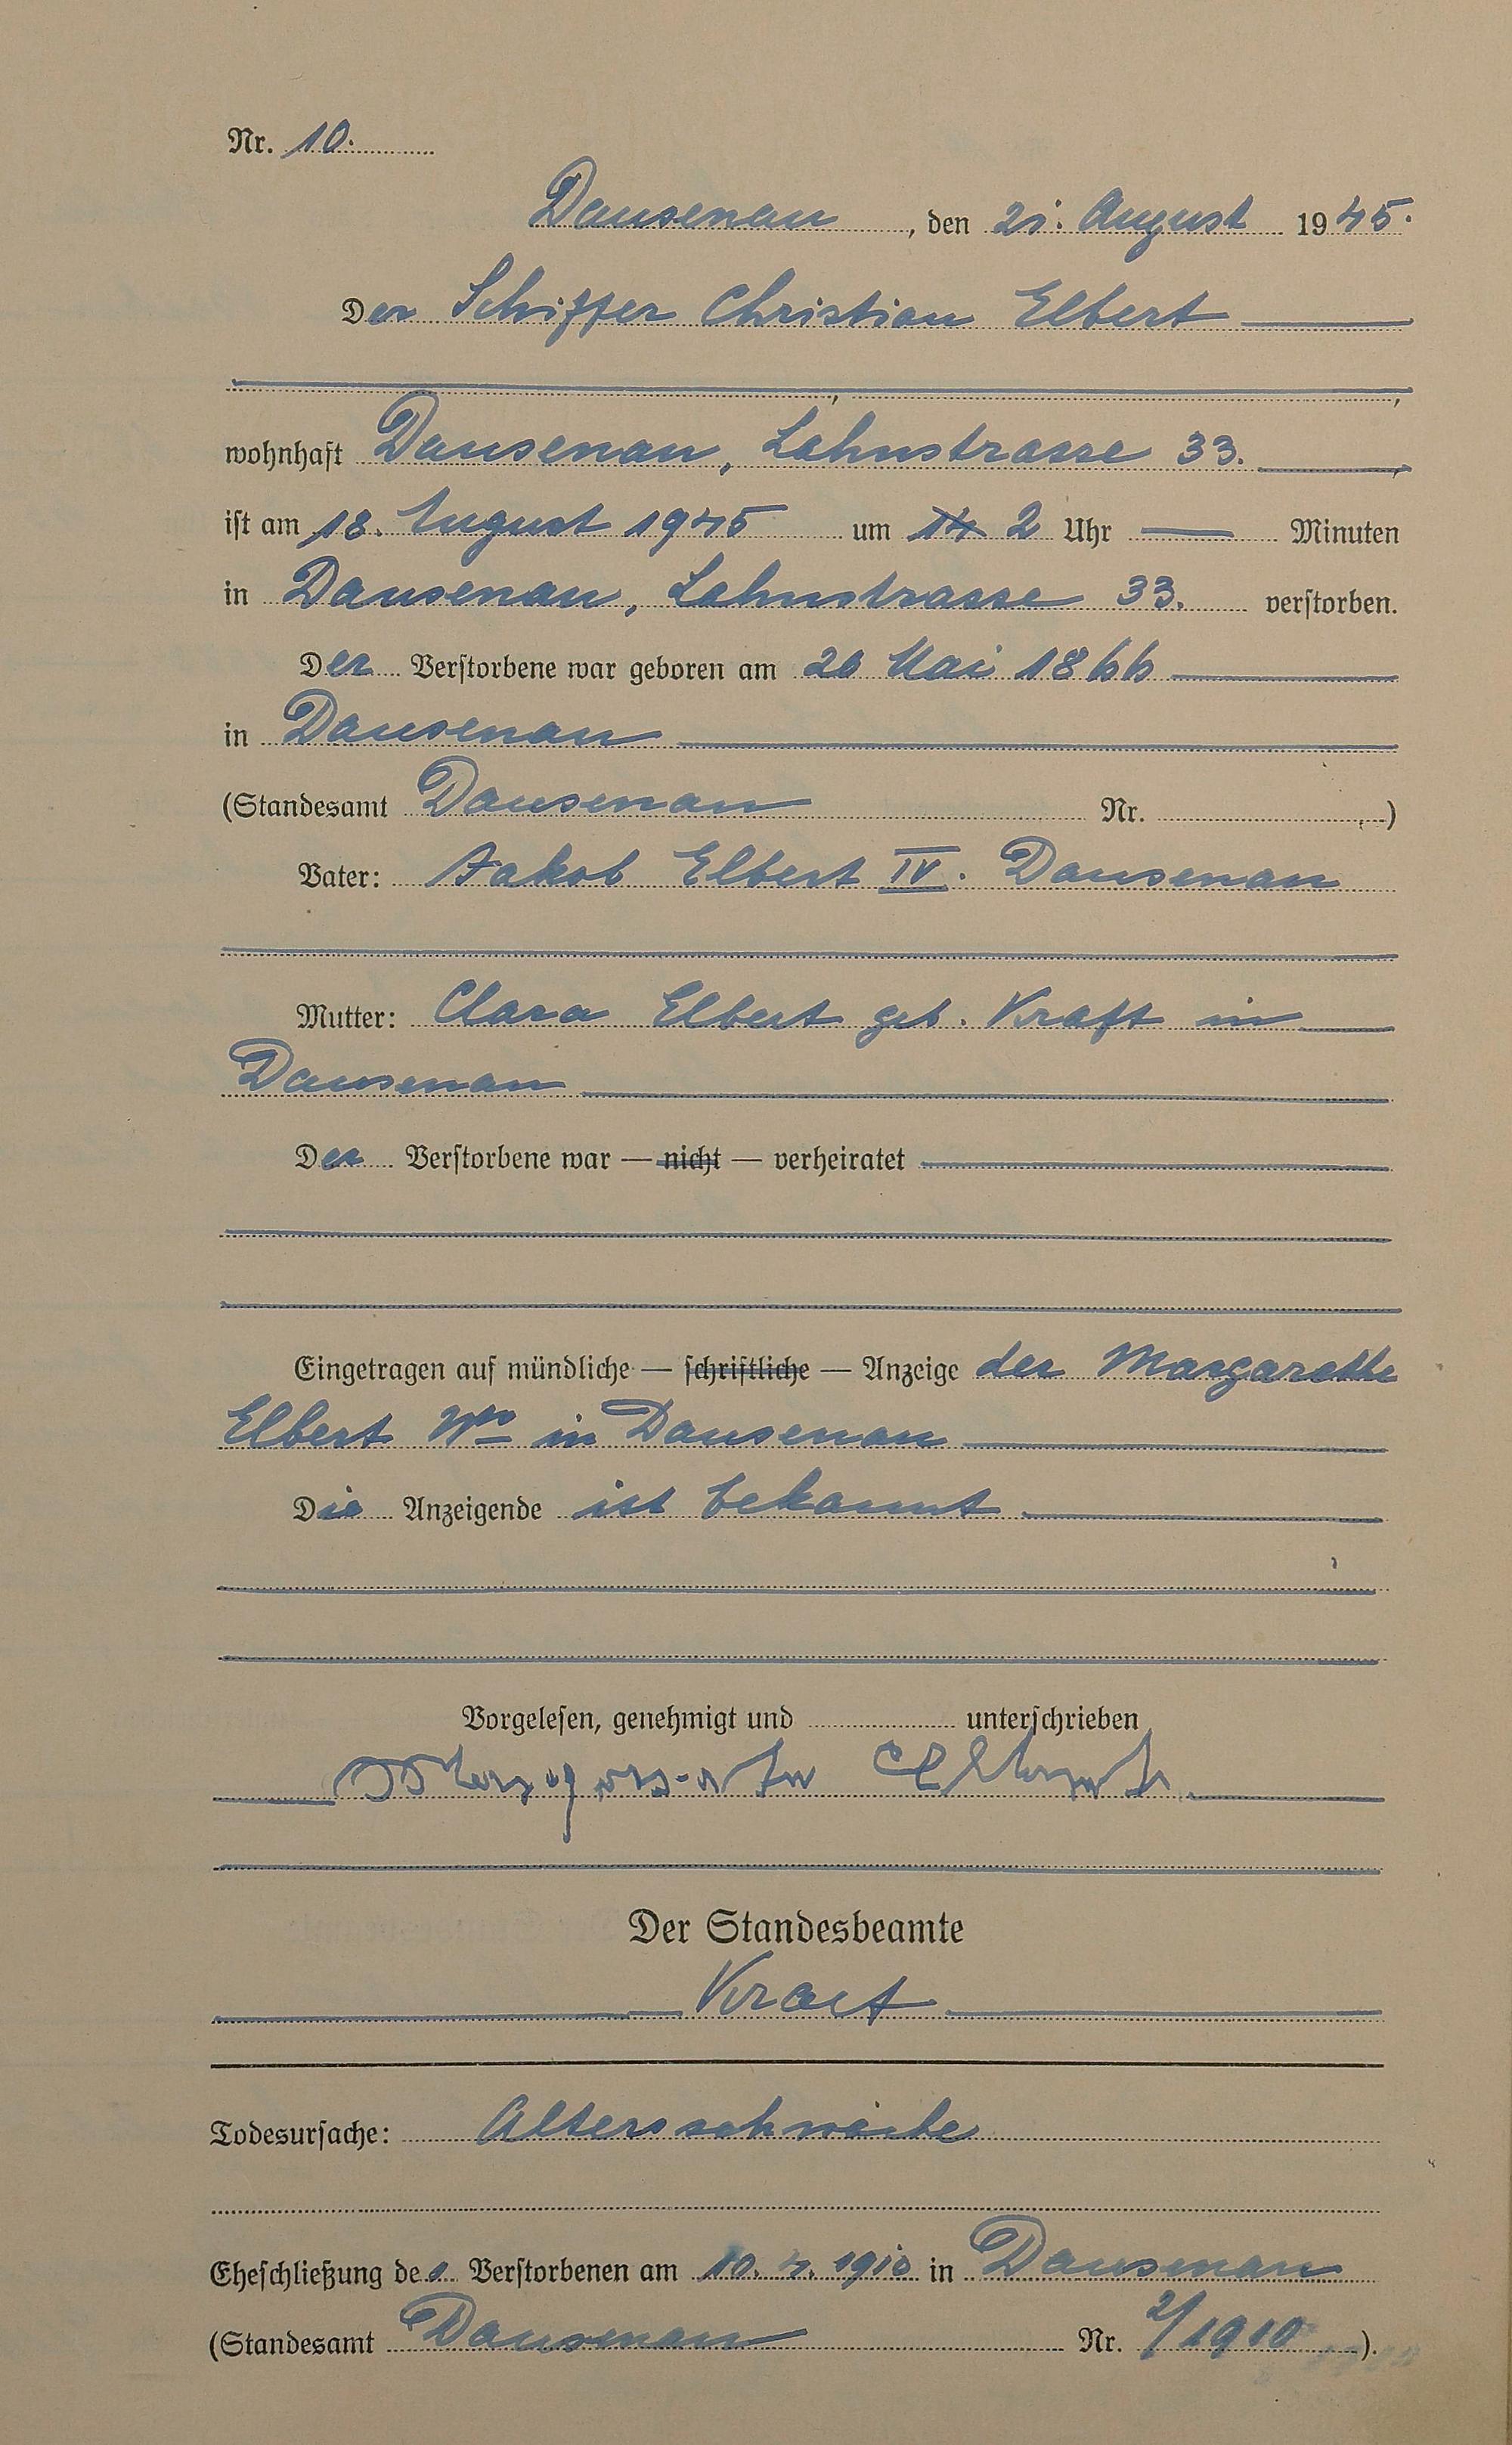 Nr. 10.
Dausenau, den 21. August 1945.
Der Schiffer Christian Elbert
wohnhaft Dausenau, Lahnstrasse 33.
ist am 18. August 1945 um 14 2 Uhr — Minuten
in Dausenau, Lahnstrasse 33. verstorben.
Der Verstorbene war geboren am 20 Mai 1866
in Dausenau
(Standesamt Dausenau Nr. )
Vater: Jakob Elbert IV. Dausenau
Mutter: Clara Elbert geb. Kraft in
Dausenau
Der Verstorbene war — nicht — verheiratet
Eingetragen auf mündliche — schriftliche — Anzeige der Margarethe
Elbert Wwe in Dausenau
Die Anzeigende ist bekannt
Vorgelesen, genehmigt und unterschrieben
Elbert
Der Standesbeamte
Kraft
Todesursache: Altersschwäche
Eheschließung des Verstorbenen am 10. 4. 1910 in Dausenau
(Standesamt Dausenau Nr. 2/1910).